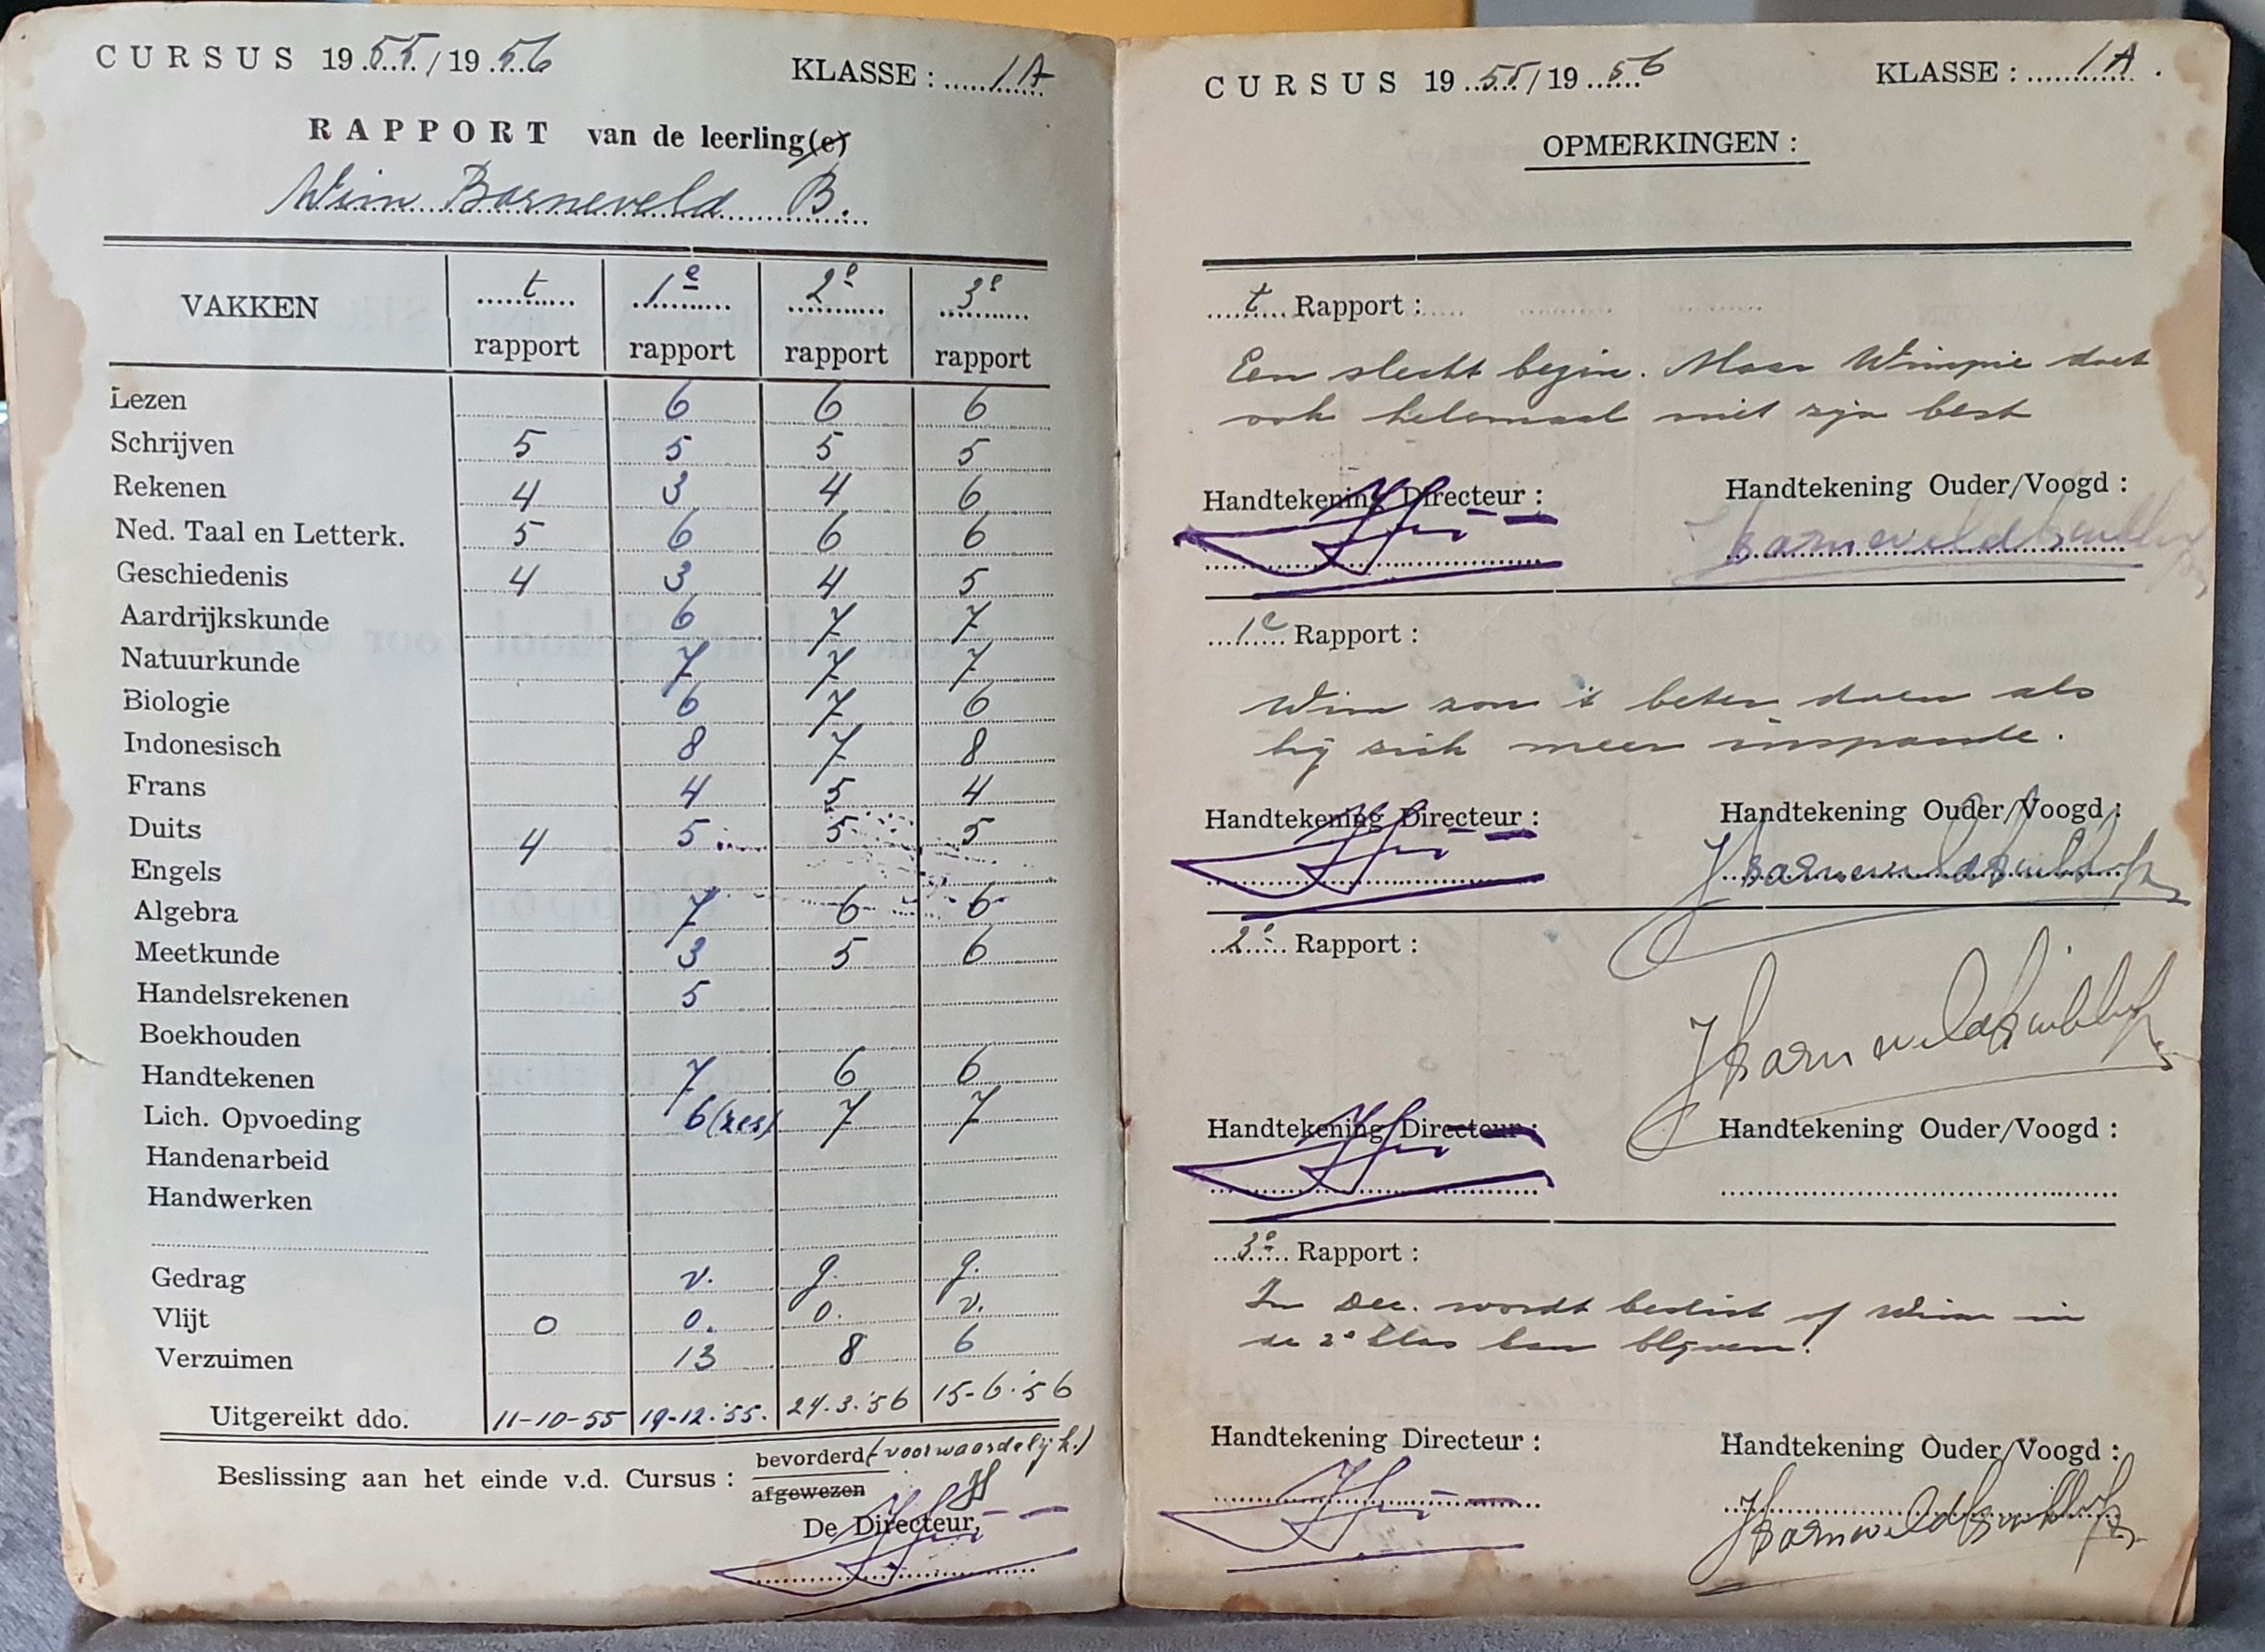 CURSUS 1955/1956 KLASSE: 1A
RAPPORT van de leerling(e)
Wim Barneveld B.
VAKKEN t rapport 1e rapport 2e rapport 3e rapport
Lezen 6 6 6
Schrijven 5 5 5 5
Rekenen 4 3 4 6
Ned. Taal en Letterk. 5 6 6 6
Geschiedenis 4 3 4 5
Aardrijkskunde 6 7 7
Natuurkunde 7 7 7
Biologie 6 7 6
Indonesisch 8 7 8
Frans 4 5 4
Duits 4 5 5 5
Engels
Algebra 7 6 6
Meetkunde 3 5 6
Handelsrekenen 5
Boekhouden
Handtekenen 7 6 6
Lich. Opvoeding 6 (zes) 7 7
Handenarbeid
Handwerken
Gedrag v. g. g.
Vlijt o o. o. v.
Verzuimen 13 8 6
Uitgereikt ddo. 11-10-55 19-12-'55. 24.3.'56 15-6-'56
Beslissing aan het einde v.d. Cursus: bevorderd (voorwaardelijk.)
afgewezen
De Directeur,
CURSUS 1955/1956 KLASSE: 1A.
OPMERKINGEN:
t Rapport:
Een slecht begin. Maar Wimpie doet
ook helemaal niet zijn best
Handtekening Directeur: Handtekening Ouder/Voogd:
1e Rapport:
Wim zou 't beter doen als
hij zich meer inspande.
Handtekening Directeur: Handtekening Ouder/Voogd:
2e Rapport:
Handtekening Directeur: Handtekening Ouder/Voogd:
3e Rapport:
In Dec. wordt beslist of Wim in
de 2e klas kan blijven!
Handtekening Directeur: Handtekening Ouder/Voogd: